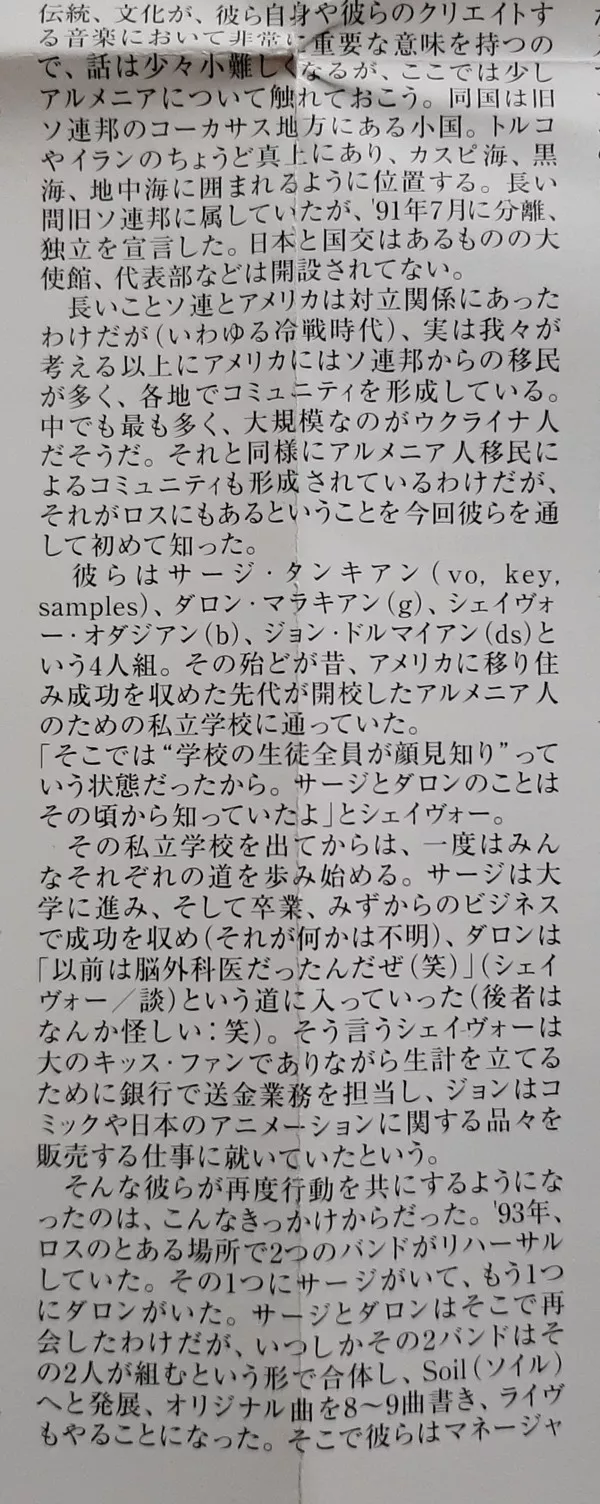 伝統、文化が、彼ら自身や彼らのクリエイトす
る音楽において非常に重要な意味を持つの
で、話は少々小難しくなるが、ここでは少し
アルメニアについて触れておこう。同国は旧
ソ連邦のコーカサス地方にある小国。トルコ
やイランのちょうど真上にあり、カスピ海、黒
海、地中海に囲まれるように位置する。長い
間旧ソ連邦に属していたが、'91年7月に分離、
独立を宣言した。日本と国交はあるものの大
使館、代表部などは開設されてない。
長いことソ連とアメリカは対立関係にあった
わけだが(いわゆる冷戦時代)、実は我々が
考える以上にアメリカにはソ連邦からの移民
が多く、各地でコミュニティを形成している。
中でも最も多く、大規模なのがウクライナ人
だそうだ。それと同様にアルメニア人移民に
よるコミュニティも形成されているわけだが、
それがロスにもあるということを今回彼らを通
して初めて知った。
彼らはサージ・タンキアン(vo, key,
samples)、ダロン・マラキアン(g)、シェイヴォ
ー・オダジアン(b)、ジョン・ドルマイアン(ds)と
いう4人組。その殆どが昔、アメリカに移り住
み成功を収めた先代が開校したアルメニア人
のための私立学校に通っていた。
「そこでは“学校の生徒全員が顔見知り”って
いう状態だったから。サージとダロンのことは
その頃から知っていたよ」とシェイヴォー。
その私立学校を出てからは、一度はみん
なそれぞれの道を歩み始める。サージは大
学に進み、そして卒業、みずからのビジネス
で成功を収め(それが何かは不明)、ダロンは
「以前は脳外科医だったんだぜ(笑)」(シェイ
ヴォー／談)という道に入っていった(後者は
なんか怪しい：笑)。そう言うシェイヴォーは
大のキッス・ファンでありながら生計を立てる
ために銀行で送金業務を担当し、ジョンはコ
ミックや日本のアニメーションに関する品々を
販売する仕事に就いていたという。
そんな彼らが再度行動を共にするようにな
ったのは、こんなきっかけからだった。'93年、
ロスのとある場所で2つのバンドがリハーサル
していた。その1つにサージがいて、もう1つ
にダロンがいた。サージとダロンはそこで再
会したわけだが、いつしかその2バンドはそ
の2人が組むという形で合体し、Soil(ソイル)
へと発展、オリジナル曲を8〜9曲書き、ライヴ
もやることになった。そこで彼らはマネージャ